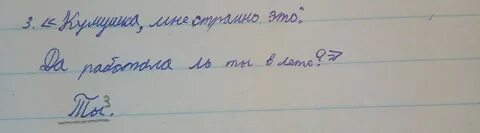 3. «Кумушка, мне странно это:
Да работала ль ты в лето?»
Ты³.